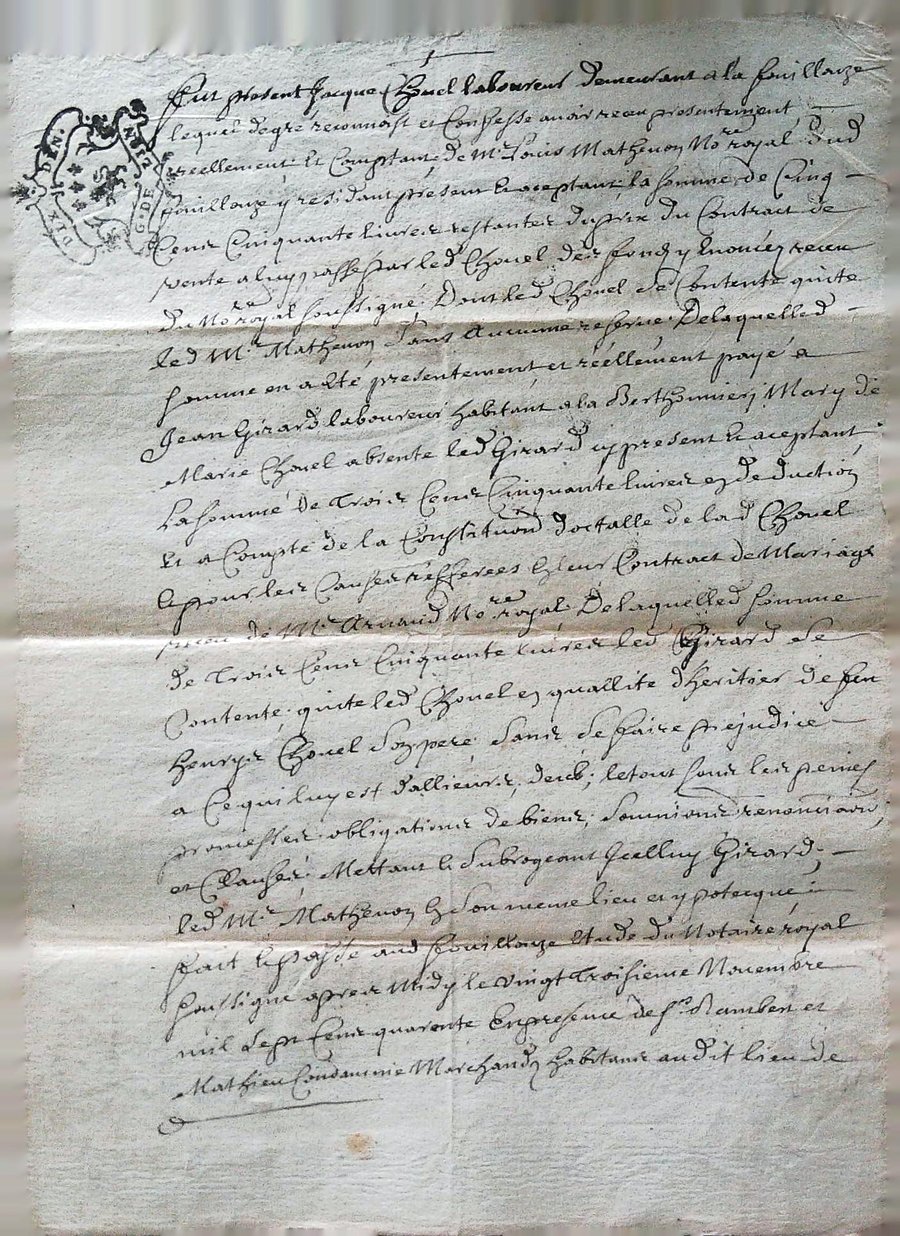 DIX DEN. G. DE
Fut present Jacque Chouel laboureur demeurant a la fouillouze
lequel de gré reconnoist et Confesse avoir receu presentement
reellement Et Comptant de Mr Louis Mathenon Nore royal dud
fouillouze y residant present Et aceptant la somme de Cinq
Cens Cinquante livres restantes du prix du Contract de
vente a luy passé par led Chouel des fonds y Enoncés receu
du Nore royal soussigné, Dont led Chouel se Contente quite
led Mr Mathenon Sans Aucunne reserve De laquelled
somme en a Eté presentement et réellement payé a
Jean Girard laboureur habitant a la Berthonniery Mary de
Marie Chouel absente led Girard icy present Et aceptant
La somme De Trois Cens Cinquante livres en deduction
Et a Compte de la Constitution doctalle de lad Chouel
Et pour les Causes refferées En leur Contract de Mariage
receu de Mr Arnaud Nore royal De laquelled somme
de Trois Cens Cinquante livres led Girard se
Contente, quite led Chouel en quallite d'heritier de feu
henrys Chouel Son pere Sans Se faire prejudice
a Ce qui luy est d'allieurs deub; le tout sous les peines
promesses obligations de biens, Soumions renonciaons,
et Clauses Mettant Et Subrogeant Icelluy Girard,
led Mr Mathenon En Son meme lieu et ypotecque
fait Et passé aud fouillouze Etude du Notaire royal
soussigné apres Midy le Vingt Troisieme Novembre
mil Sept Cens quarente En presence de sr Rambert et
Mathieu Condaminie Marchands habitans audit lieu de